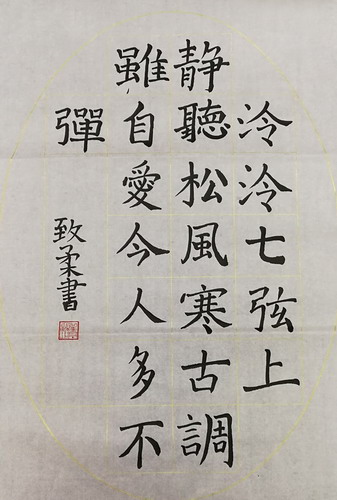 泠泠七弦上
静聽松風寒古調
雖自愛今人多不
彈
致柔書